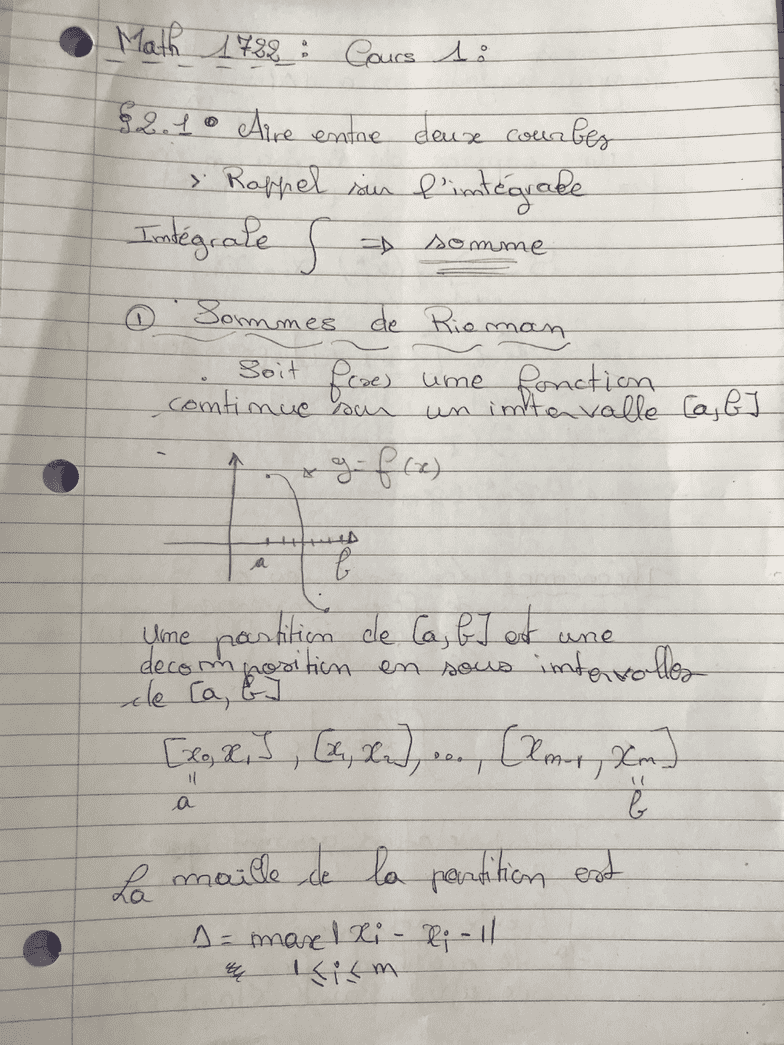 Math 1722 : Cours 1 :
§2.1 • Aire entre deux courbes
> Rappel sur l'intégrale
Intégrale ∫ ⇒ somme
① Sommes de Rieman
. Soit f(x) une fonction
continue sur un intervalle [a, b]
y = f(x)
a b
Une partition de [a, b] est une
decomposition en sous intervalles
de [a, b]
[x₀, x₁], [x₁, x₂], ..., [xₙ₋₁, xₙ]
a b
La maille de la partition est
Δ = max | xᵢ - xᵢ - 1 |
1 ≤ i ≤ n